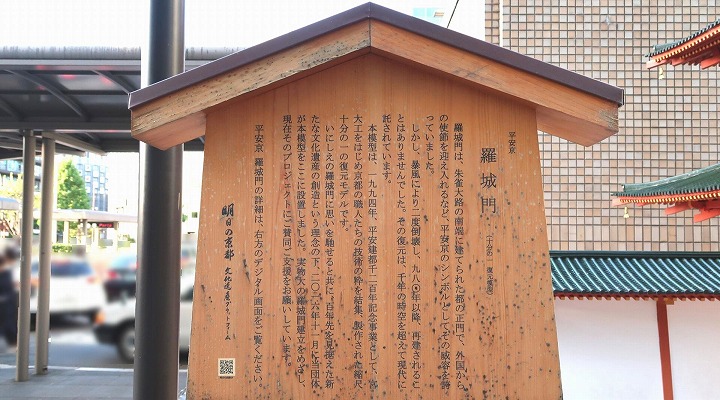 平安京
羅城門 （十分の一 復元模型）
羅城門は、朱雀大路の南端に建てられた都の正門で、外国から
の使節を迎え入れるなど、平安京のシンボルとしてその威容を誇
っていました。
しかし、暴風により二度倒壊し、九八〇年以降、再建されるこ
とはありませんでした。その復元は、千年の時空を超えて現代に
託されています。
本模型は、一九九四年、平安建都千二百年記念事業として、宮
大工をはじめ京都の職人たちの技術の粋を結集、製作された縮尺
十分の一の復元モデルです。
いにしえの羅城門に思いを馳せると共に、百年先を見据えた新
たな文化遺産の創造という理念の下、二〇一六年十一月に当団体
が本模型をここに設置しました。実物大の羅城門建立をめざし、
現在そのプロジェクトにご賛同ご支援をお願いしています。
平安京 羅城門の詳細は、右方のデジタル画面をご覧ください。
明日の京都 文化遺産プラットフォーム